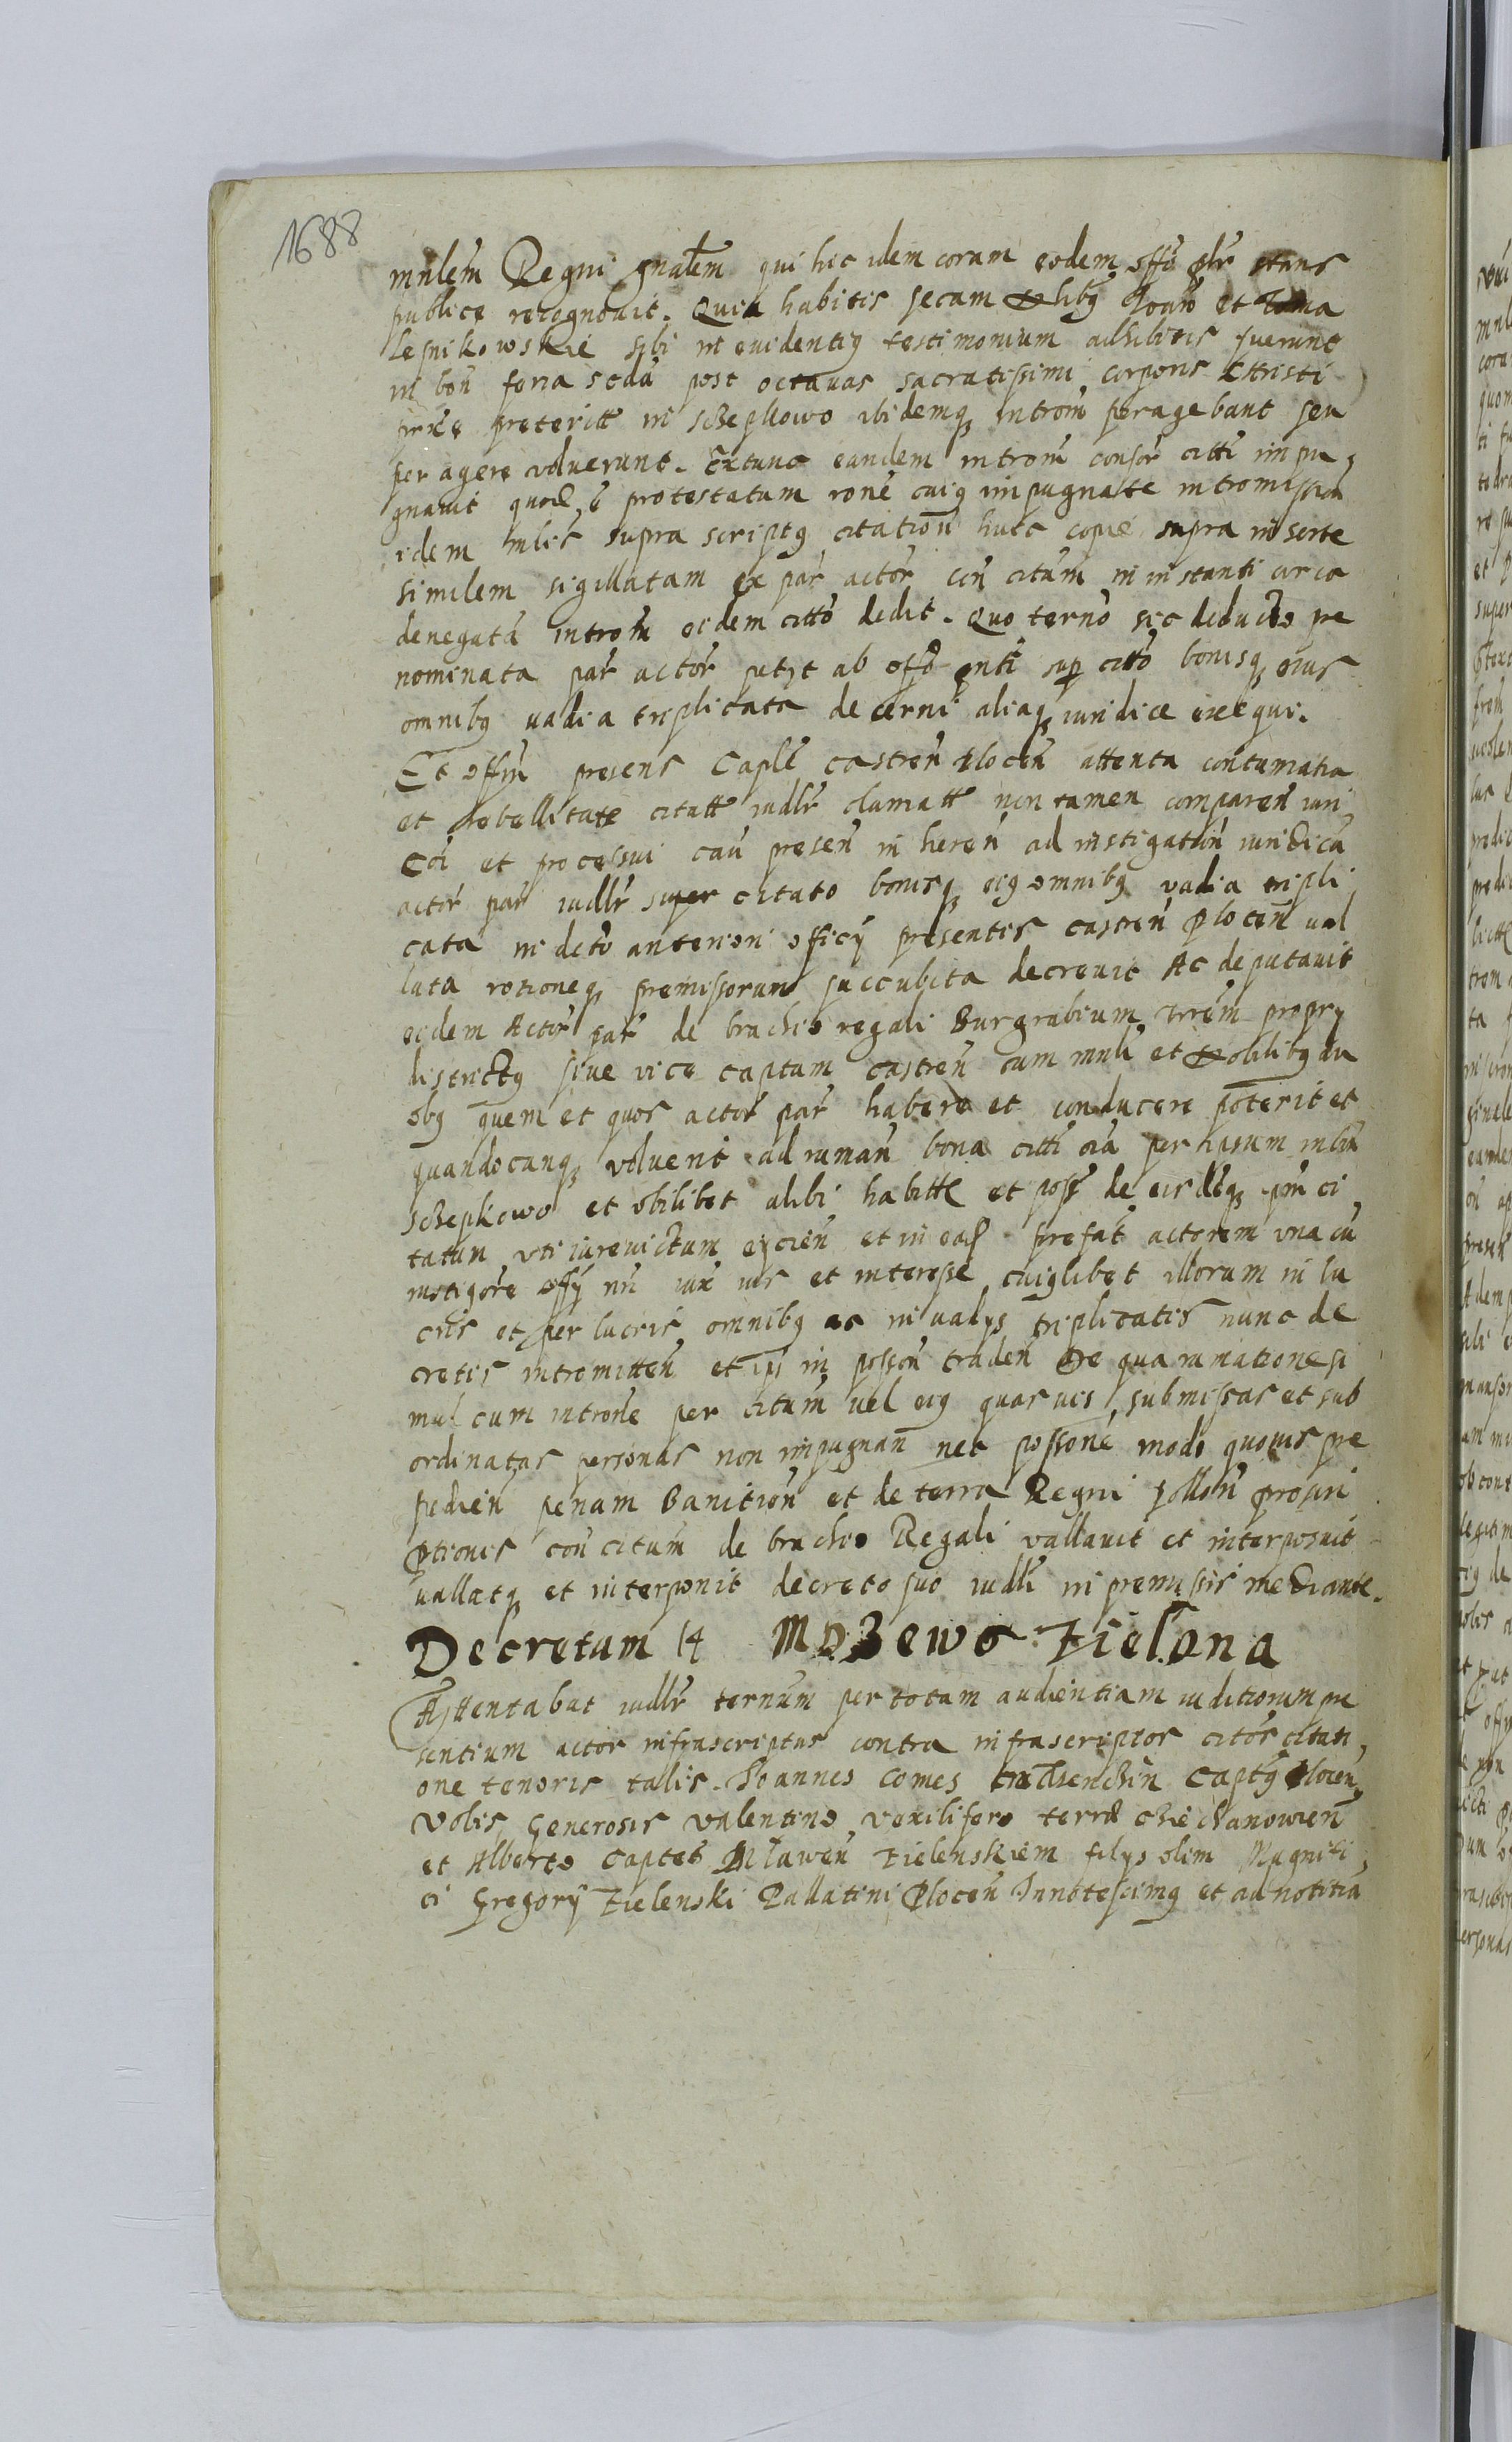 1688
mnlem Regni gnalem qui hic idem coram eodem offo plr stans
publice recognouit. Quia habitis secum Nlibq Joan et Toma
Lesnikowskie sibi in euidentiq testimonium adhibitis fuerunt
in bon feria scda post octauas sacratissimi corporis Christi
prxe preteritt in sczepkowo ibidemq introm peragebant seu
per agere voluerunt. Extunc eandem introm consor citti impu,
gnauit quod e protestatum rone cuiq impugnate intromission
idem mlis supra scriptq citation huic copie supra inserte
similem sigillatam ex par actor con citum in instanti circa
denegata introm eidem citto dedit. Quo terno sic deducto pre
nominata par actor petyt ab offo pnti sup citto bonisq eius
omnibq vadia triplicata decerni aliaq iuridice exequi.
Et offm presens Caple castren Plocen attenta contumatia
et rebellitate citatt iudlr clamatt non tamen comparen iuri
Coi et processui cau presen in heren ad instigation iuridica
actor par iudlr super citato bonisq eiq omnibq vadia tripli
cata in dcto anteriori officy presentis castren Plocen val
lata rationeq premissorum succubita decreuit Ac deputauit
eidem Actor par de brachio regali Burgrabium Trrem propry
districtq siue vice captum castren cum mnli et Nobilibq du
obq quem et quos actor par habere et conducere poterit et
quandocunq voluerit ad ruman bona citti oia per ipsum in bn
sczepkowo et vbilibet alibi habitt et poss de eisdeq pn ci
tatun vti iurevictum eycien et in eas prefat actorem vna cu
instigore offy nri iux ius et interesse cuiqlibet illorum in lu
cris et per lucris omnibq ac in vadys triplicatis nunc de
cretis intromitten et ipi in posson traden De qua rumatione si
mul cum introne per citum vel eiq quas vis submissas et sub
ordinatas personas non impugnan nec possone modo quouis pre
pedien penam Banition et de terra Regni pollon proscri
ptionis con citum de brachio Regali vallauit et interposuit
vallatq et interponit decreto suo iudli in premissis mediante.
Decretum 14 Mdzewo Zielona
Attentabat iudlr ternum per totam audientiam iuditiorum pre
sentium actor infrascriptus contra infrascriptos citos citati,
one tenoris talis. Joannes comes Captq Plocen
Vobis Generosis Valentino vexilifero terre Cziechanowien
et Alberto Captos Mlawen Zielenskiem filys olim Magnifi,
ci Gregory Zielenski Pallatini Plocen Innotescimq et ad notitia